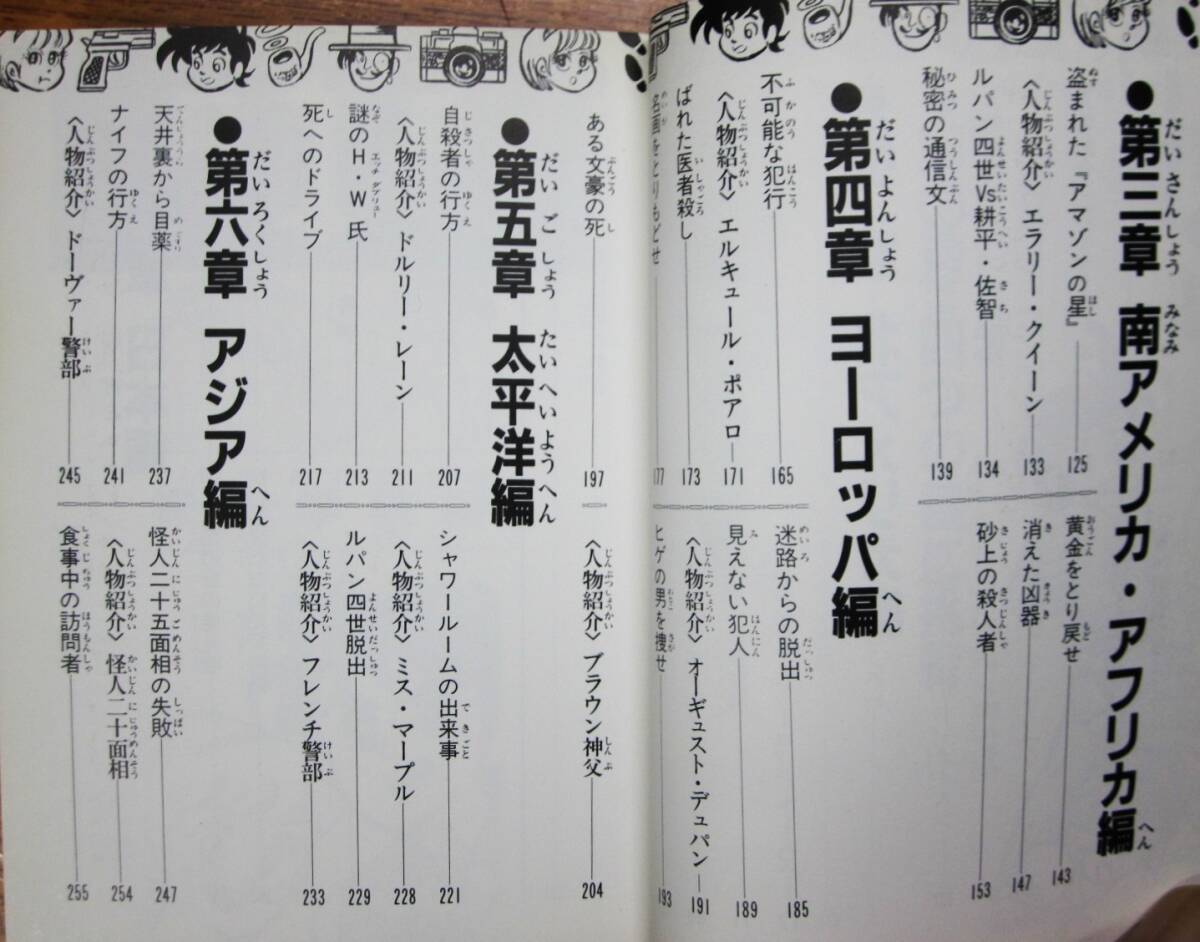 ●第三章 南アメリカ・アフリカ編
盗まれた『アマゾンの星』 125
〈人物紹介〉エラリー・クイーン 133
ルパン四世Vs耕平・佐智 134
秘密の通信文 139
黄金をとり戻せ 143
消えた凶器 147
砂上の殺人者 153
●第四章 ヨーロッパ編
不可能な犯行 165
〈人物紹介〉エルキュール・ポアロ 171
ばれた医者殺し 173
名画をとりもどせ 177
迷路からの脱出 185
見えない犯人 189
〈人物紹介〉オーギュスト・デュパン 191
ヒゲの男を捜せ 193
ある文豪の死 197
〈人物紹介〉ブラウン神父 204
●第五章 太平洋編
自殺者の行方 207
〈人物紹介〉ドルリー・レーン 211
謎のH・W氏 213
死へのドライブ 217
シャワールームの出来事 221
〈人物紹介〉ミス・マープル 228
ルパン四世脱出 229
〈人物紹介〉フレンチ警部 233
●第六章 アジア編
天井裏から目薬 237
ナイフの行方 241
〈人物紹介〉ドーヴァー警部 245
怪人二十五面相の失敗 247
〈人物紹介〉怪人二十面相 254
食事中の訪問者 255